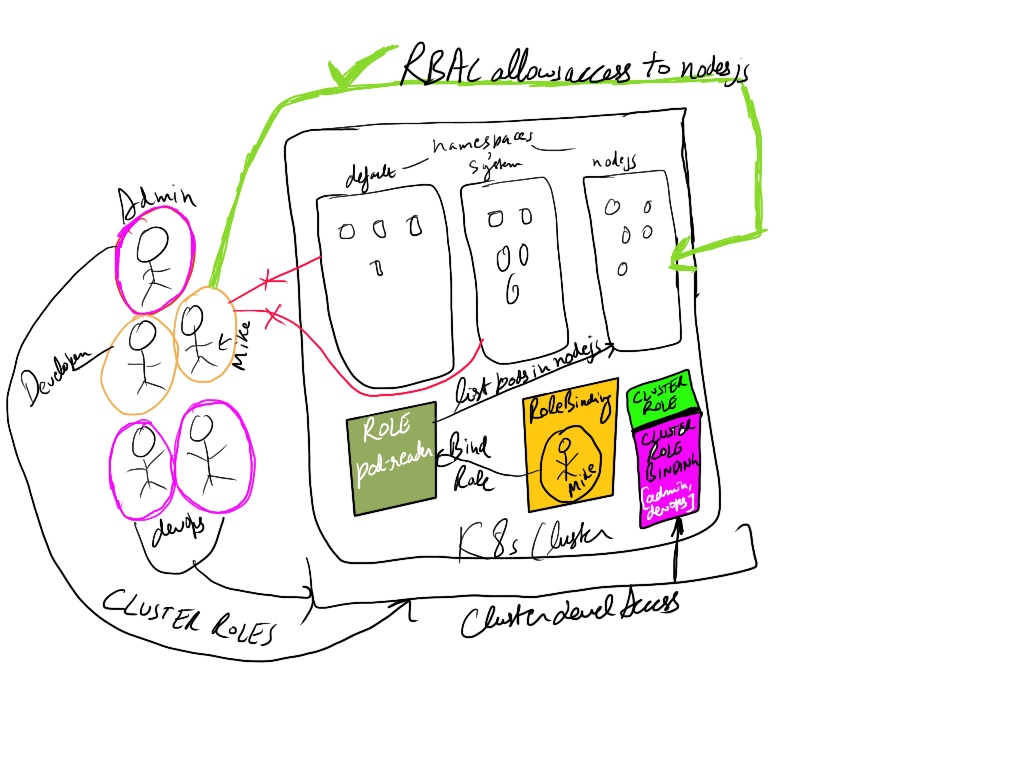 RBAC allows access to nodesjs
namespaces
default
system
nodejs
Admin
Mike
Developer
devops
CLUSTER ROLES
list pods in nodejs
ROLE
pod-reader
Bind
Role
RoleBinding
Mike
CLUSTER
ROLE
CLUSTER
ROLE
BINDING
[admin,
devops]
K8s Cluster
Cluster Level Access